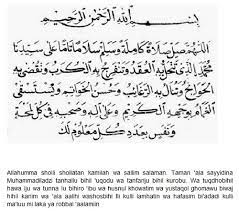 بِسْمِ اللهِ الرَّحْمٰنِ الرَّحِيْمِ
اَللّٰهُمَّ صَلِّ صَلَاةً كَامِلَةً وَسَلِّمْ سَلَامًا تَامًّا عَلَى سَيِّدِنَا
مُحَمَّدٍ الَّذِيْ تَنْحَلُّ بِهِ الْعُقَدُ وَتَنْفَرِجُ بِهِ الْكُرَبُ وَتُقْضَى بِهِ
الْحَوَائِجُ وَتُنَالُ بِهِ الرَّغَائِبُ وَحُسْنُ الْخَوَاتِمِ وَيُسْتَسْقَى
الْغَمَامُ بِوَجْهِهِ الْكَرِيْمِ وَعَلَى آلِهِ وَصَحْبِهِ فِيْ كُلِّ لَمْحَةٍ
وَنَفَسٍ بِعَدَدِ كُلِّ مَعْلُوْمٍ لَكَ
Allahumma sholli shollatan kamilah wa sallim salaman. Taman 'ala sayyidina
Muhammadiladzi tanhallu bihil 'uqodu wa tanfariju bihil kurobu. Wa tuqdhobihil
hawa iju wa tunna lu bihiro 'ibu wa husnul khowatim wa yustaqol ghomawu biwaj
hihil karim wa 'ala aalihi washosbihi fii kulli lamhatin wa hafasim bi'adadi kulli
ma'luu mi laka ya robbal 'aalamiin